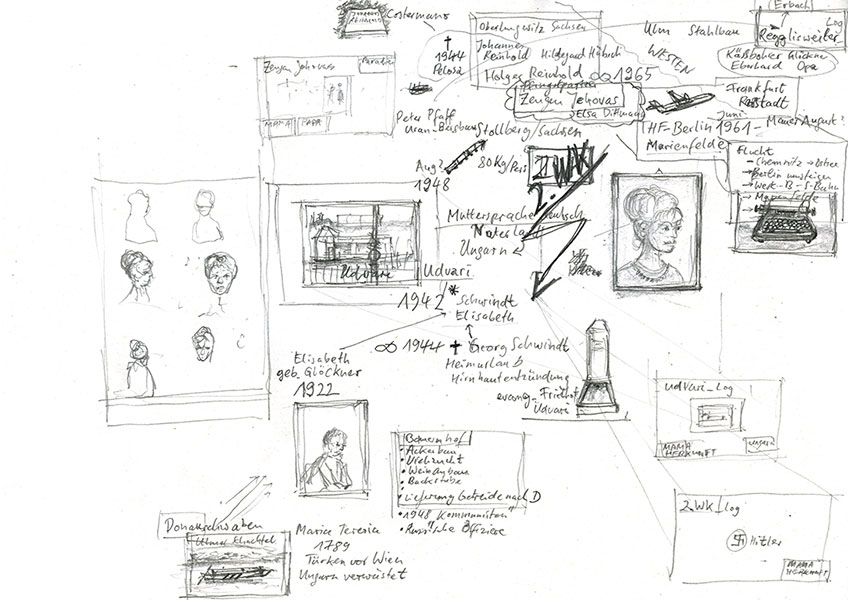 Costermano
✝
1944
Pelosa
Oberlungwitz Sachsen
Johannes
Reinhold Hildegard Hübsch
Holger Reinhold ∞ 1965
Zeugen Jehovas
Elsa Dittmann
Ulm Stahlbau
WESTEN
Erbach
Log
Regglisweiler
Käßbohrer Glöckner
Eberhard Opa
Frankfurt
Rastadt
Juni
HF-Berlin 1961 - Mauer August?
Marienfelde
Flucht
- Chemnitz → Ostsee
→ Berlin umsteigen
→ Werk-B-S-Bahn
→ Marienfelde
Zeugen Jehovas
Paradies
MAMA
PAPA
Peter Pfaff
Uran-Bergbau Stollberg/Sachsen
Aug?
1948
80 Kg/Pers
2. WK
Muttersprache Deutsch
Vaterland
Ungarn
Udvari
Udvari
1942 * Schwindt
Elisabeth
∞ 1944 ✝ Georg Schwindt
Heimurlaub
Hirnhautentzündung
evang. Friedhof
Udvari
Elisabeth
geb. Glöckner
1922
Bauernhof
• Ackerbau
• Viehzucht
• Weinanbau
• Backstube
• Lieferung Getreide nach D
• 1948 "Kommunisten"
• Russische Offiziere
Donauschwaben
Ulmer Schachtel
Maria Teresia
1789
Türken vor Wien
Ungarn verwüstet
Udvari_log
MAMA
HERKUNFT
Ungarn
2.WK_log
Hitler
MAMA
HERKUNFT